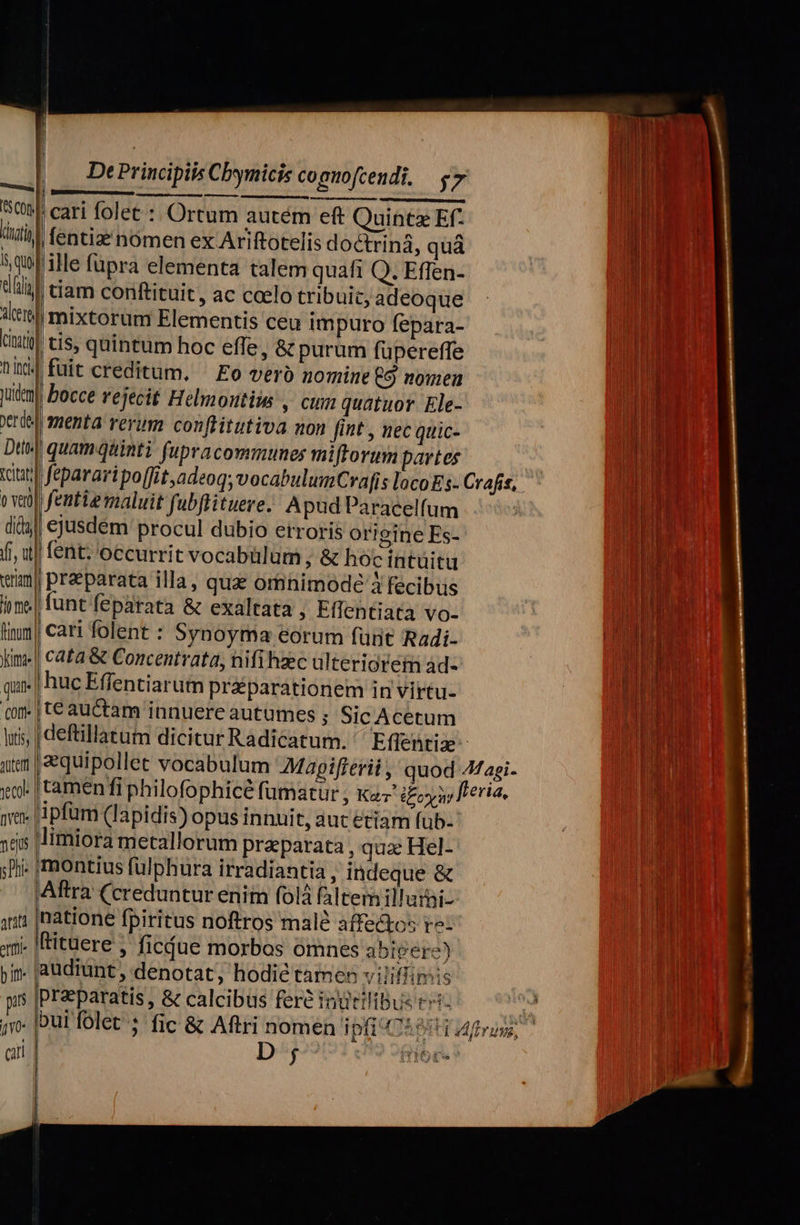 De Principiis Chymicis cognoſcendi. 57
cari ſolet : Ortum autem eſt Quintæ Eſ-
ſentiæ nomen ex Ariſtotelis doctrinâ, quâ
ille ſupra elementa talem quaſi Q. Eſſen-
tiam conſtituit, ac cœlo tribuit, adeoque
mixtorum Elementis ceu impuro ſepara-
tis, quintum hoc eſſe, & purum ſupereſſe
fuit creditum. Eo verò nomine & nomen
hocce rejecit Helmontius, cum quatuor Ele-
menta rerum conſtitutiva non ſint, nec quic-
quam quinti ſupra communes miſtorum partes
ſeparari poſſit, adeoq; vocabulum Craſis loco Eſ- Craſis,
ſentiæ maluit ſubſtituere. Apud Paracelſum
ejusdem procul dubio erroris origine Es-
ſent. occurrit vocabulum, & hoc intuitu
præparata illa, quæ omnimodè à fecibus
ſunt ſeparata & exaltata, Eſſentiata vo-
cari ſolent : Synoyma eorum ſunt Radi-
cata & Concentrata, niſi hæc ulteriorem ad-
huc Eſſentiarum præparationem in virtu-
te auctam innuere autumes ; Sic Acetum
deſtillatum dicitur Radicatum. Eſſentiæ
æquipollet vocabulum Magiſterii, quod Magi-
tamen ſi philoſophicè ſumatur, κατ’ ἐξοχὴν ſteria,
ipſum (lapidis) opus innuit, aut etiam ſub-
limiora metallorum præparata, quæ Hel-
montius ſulphura irradiantia, indeque &
Aſtra (creduntur enim ſolâ ſaltem illumi-
natione ſpiritus noſtros malè affectos re-
ſtituere, ſicque morbos omnes abigere)
audiunt, denotat, hodiè tamen viliſſimis
præparatis, & calcibus ferè inutilibus tri-
bui ſolet ; ſic & Aſtri nomen ipſi Aſtrum,
D 5